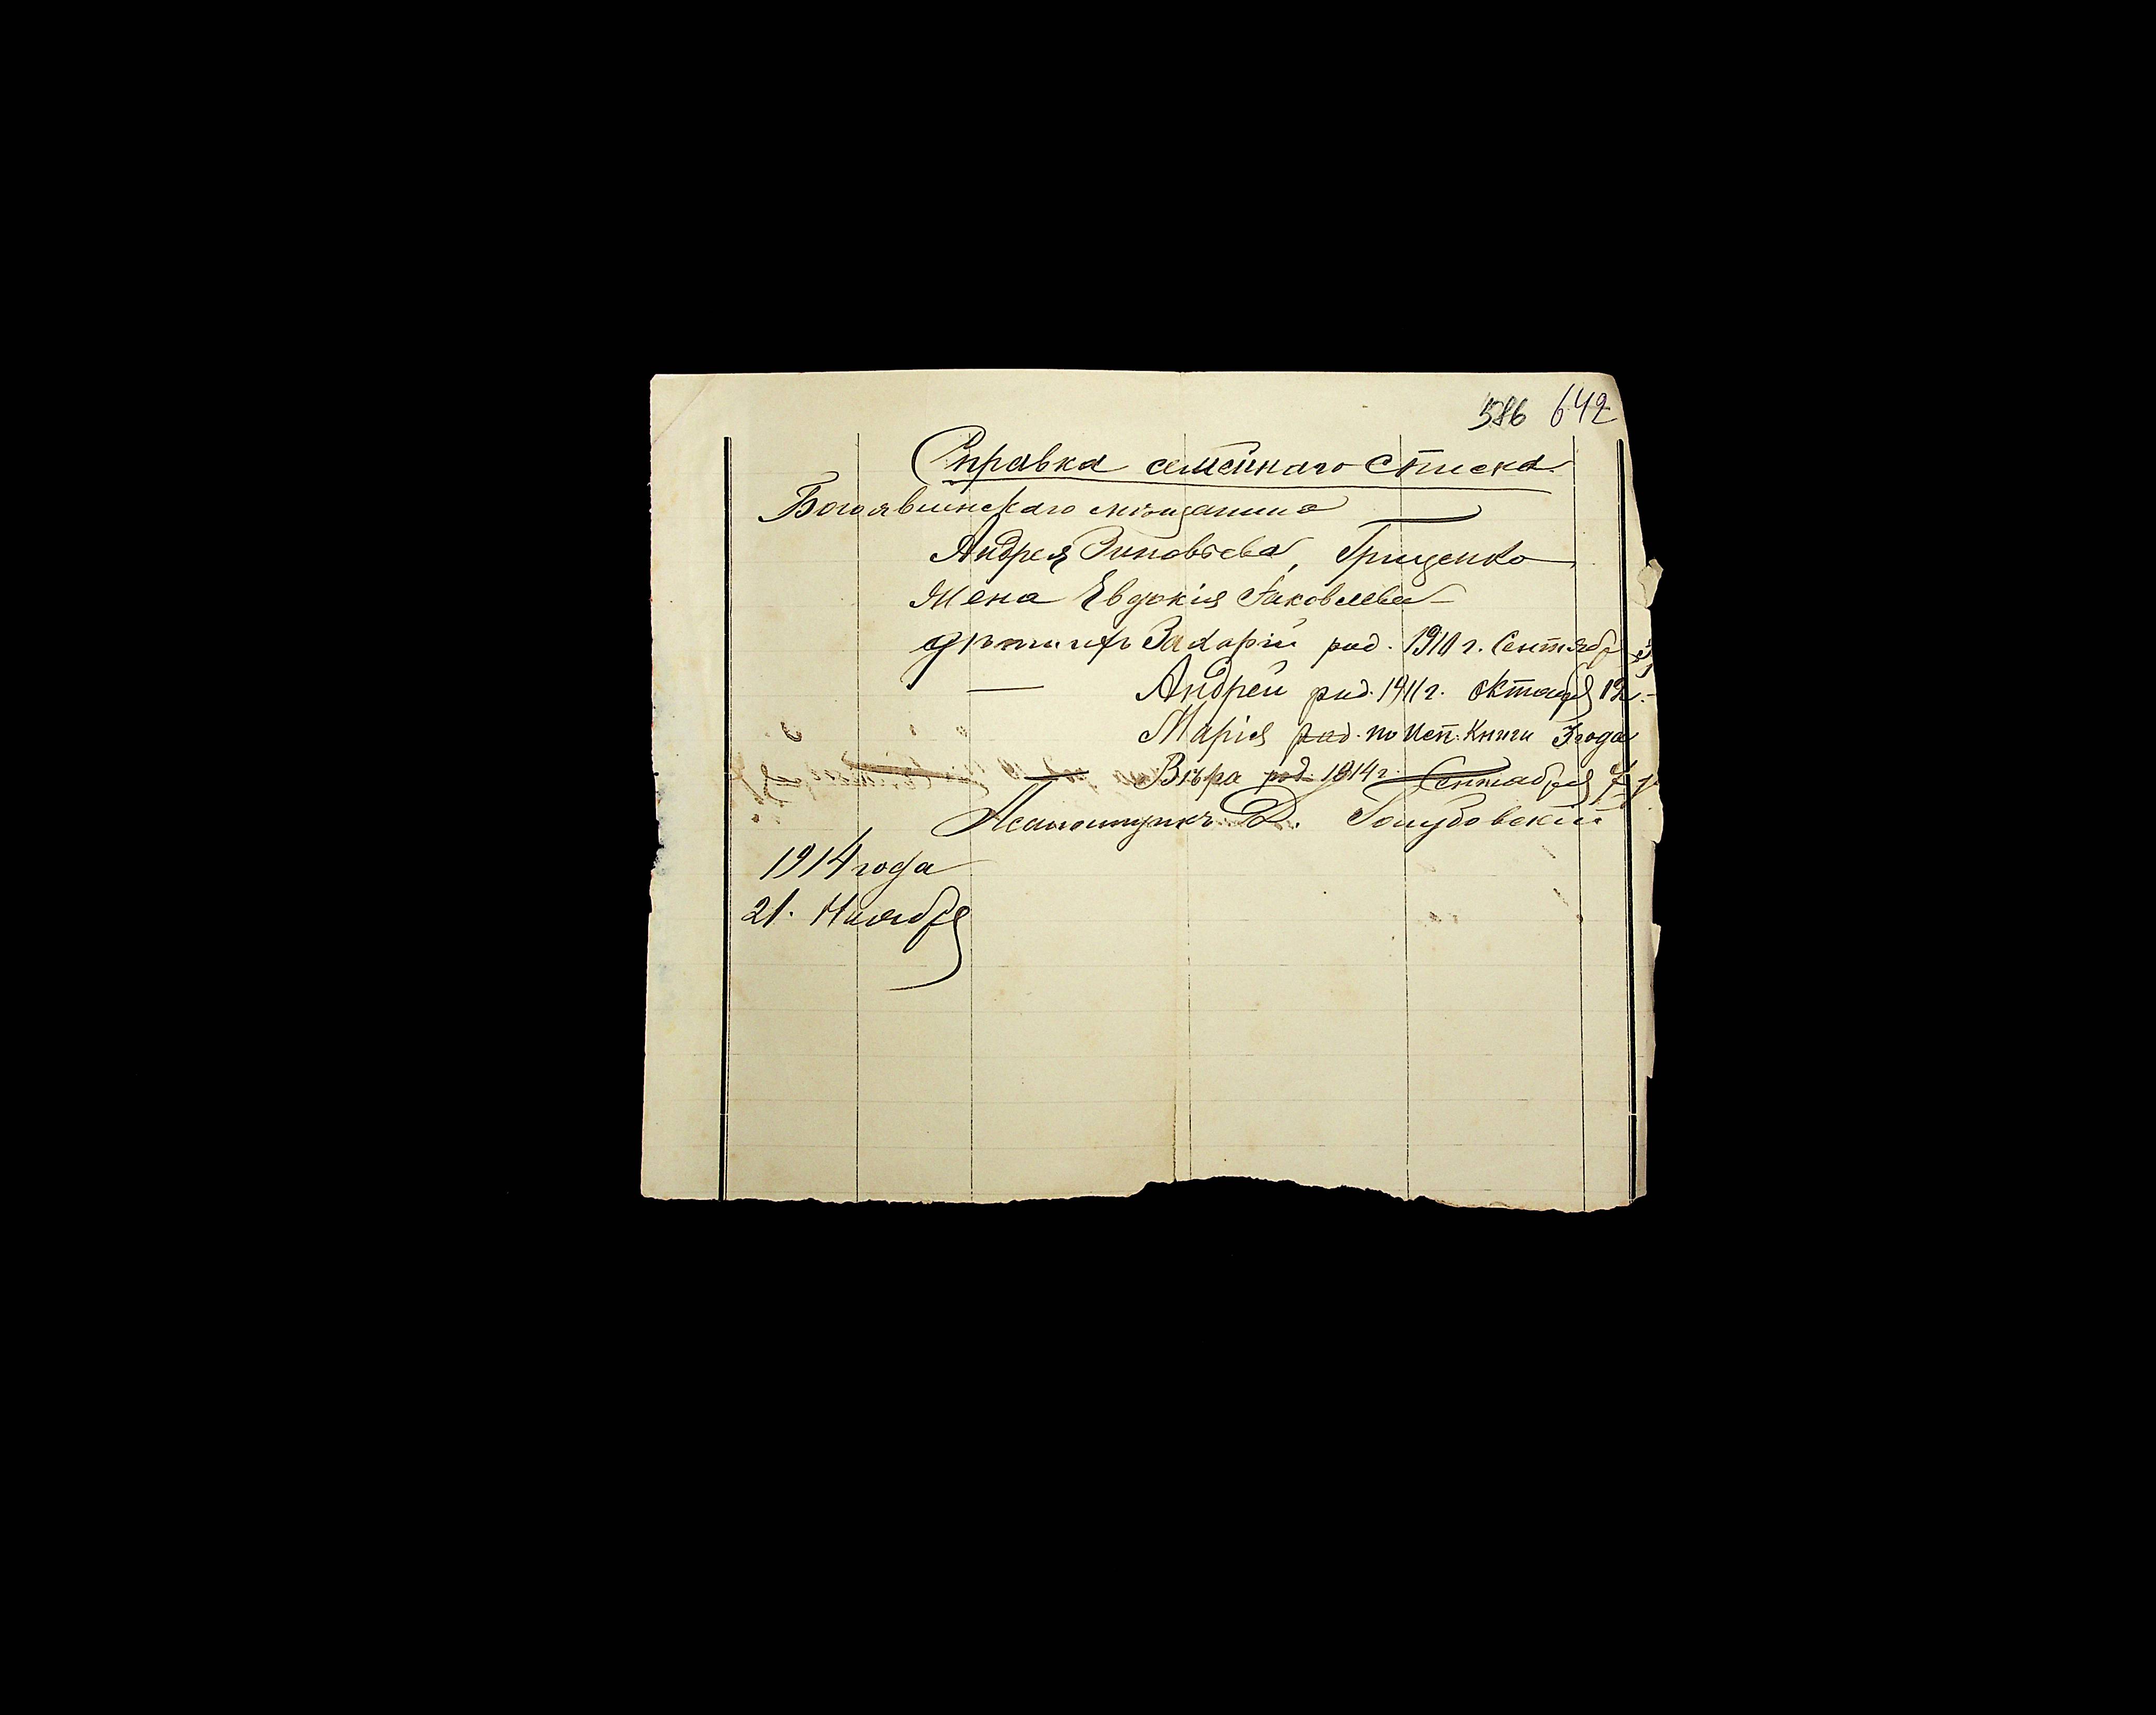 586 642
Справка семейнаго списка
Богоявленскаго мѣщанина
Андрея Зиновьева, Грищенко
Жена Евдокія Іаковлева
дѣти ихъ Захарій род. 1910 г. Сентябр
— Андрей род. 1911 г. октября 12.
Марія род. по Исп. Книги 3 года
— Вѣра род. 1914 г. Сентября
Псаломщикъ Д. Голубовскій
1914 года
21. Ноября